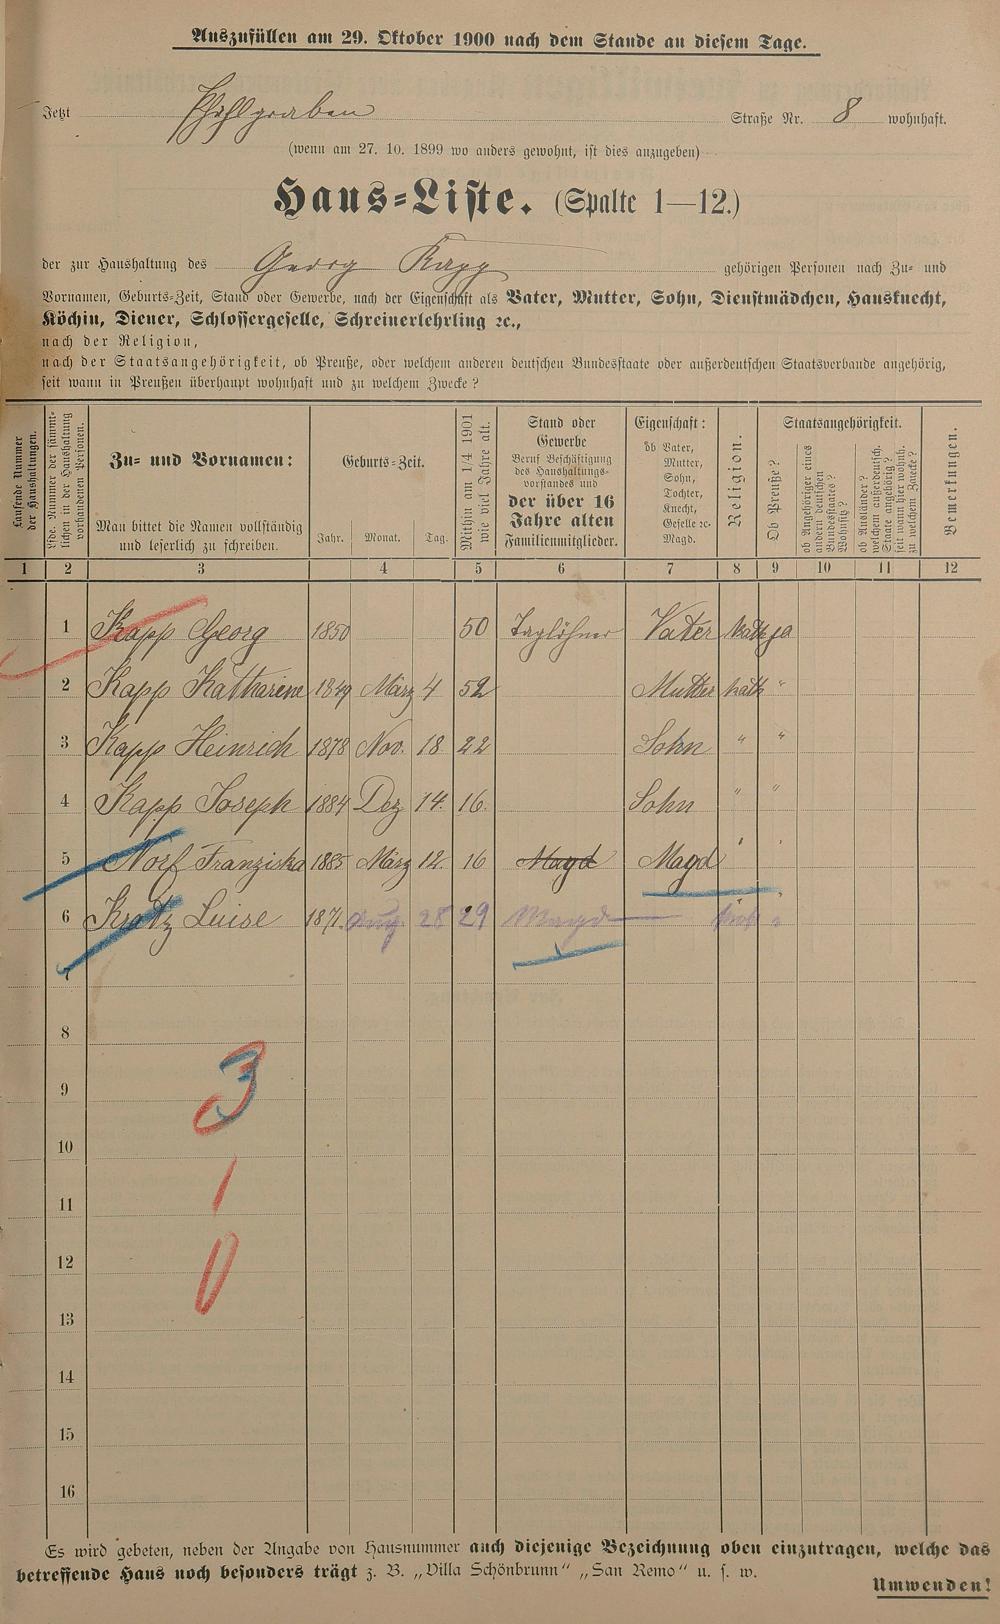 Auszufüllen am 29. Oktober 1900 nach dem Stande an diesem Tage.
Jetzt Pfahlgraben Straße Nr. 8 wohnhaft.
(wenn am 27. 10. 1899 wo anders gewohnt, ist dies anzugeben)
Haus-Liste. (Spalte 1—12.)
der zur Haushaltung des Georg Kapp gehörigen Personen nach Zu- und
Vornamen, Geburts-Zeit, Stand oder Gewerbe, nach der Eigenschaft als Vater, Mutter, Sohn, Dienstmädchen, Hausknecht,
Köchin, Diener, Schlossergeselle, Schreinerlehrling ꝛc.,
nach der Religion,
nach der Staatsangehörigkeit, ob Preuße, oder welchem anderen deutschen Bundesstaate oder außerdeutschen Staatsverbande angehörig,
seit wann in Preußen überhaupt wohnhaft und zu welchem Zwecke?
Laufende Nummer
der Haushaltungen.
Lfde. Nummer der sämmt-
lichen in der Haushaltung
vorhandenen Personen.
Zu- und Vornamen:
Man bittet die Namen vollständig
und leserlich zu schreiben.
Geburts-Zeit.
Jahr. Monat. Tag.
Mithin am 1/4 1901
wie viel Jahre alt.
Stand oder
Gewerbe
Beruf Beschäftigung
des Haushaltungs-
vorstandes und
der über 16
Jahre alten
Familienmitglieder.
Eigenschaft:
ob Vater,
Mutter,
Sohn,
Tochter,
Knecht,
Geselle ꝛc.
Magd.
Religion.
Staatsangehörigkeit.
Ob Preuße?
ob Angehöriger eines
andern deutschen
Bundesstaates?
Wohnsitz?
ob Ausländer?
welchem außerdeutsch.
Staate angehörig?
seit wann hier wohnh.
zu welchem Zwecke?
Bemerkungen.
1 2 3 4 5 6 7 8 9 10 11 12
1 Kapp Georg 1850 50 Taglöhner Vater kath ja
2 Kapp Katharine 1849 März 4 52 Mutter kath "
3 Kapp Heinrich 1878 Nov. 18 22 Sohn " "
4 Kapp Joseph 1884 Dez 14. 16. Sohn " "
5 Norf Franziska 1885 März 12. 16 Magd Magd " "
6 Kratz Luise 1871. Aug 28 29 Magd "
7
8
3
9
10
1
11
12
0
13
14
15
16
Es wird gebeten, neben der Angabe von Hausnummer auch diejenige Bezeichnung oben einzutragen, welche das
betreffende Haus noch besonders trägt z. B. „Villa Schönbrunn" „San Remo" u. s. w.
Umwenden!